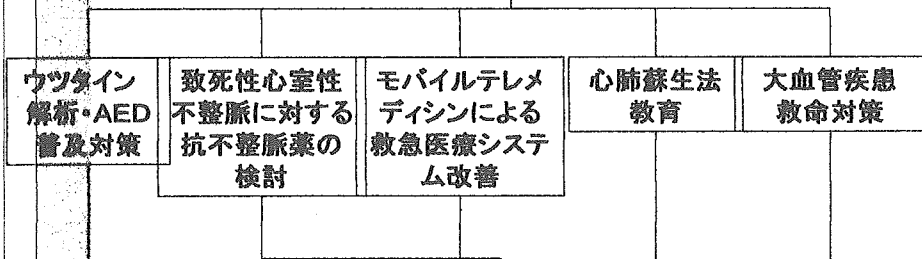 ウツタイン
解析・AED
普及対策
致死性心室性
不整脈に対する
抗不整脈薬の
検討
モバイルテレメ
ディシンによる
救急医療システ
ム改善
心肺蘇生法
教育
大血管疾患
救命対策